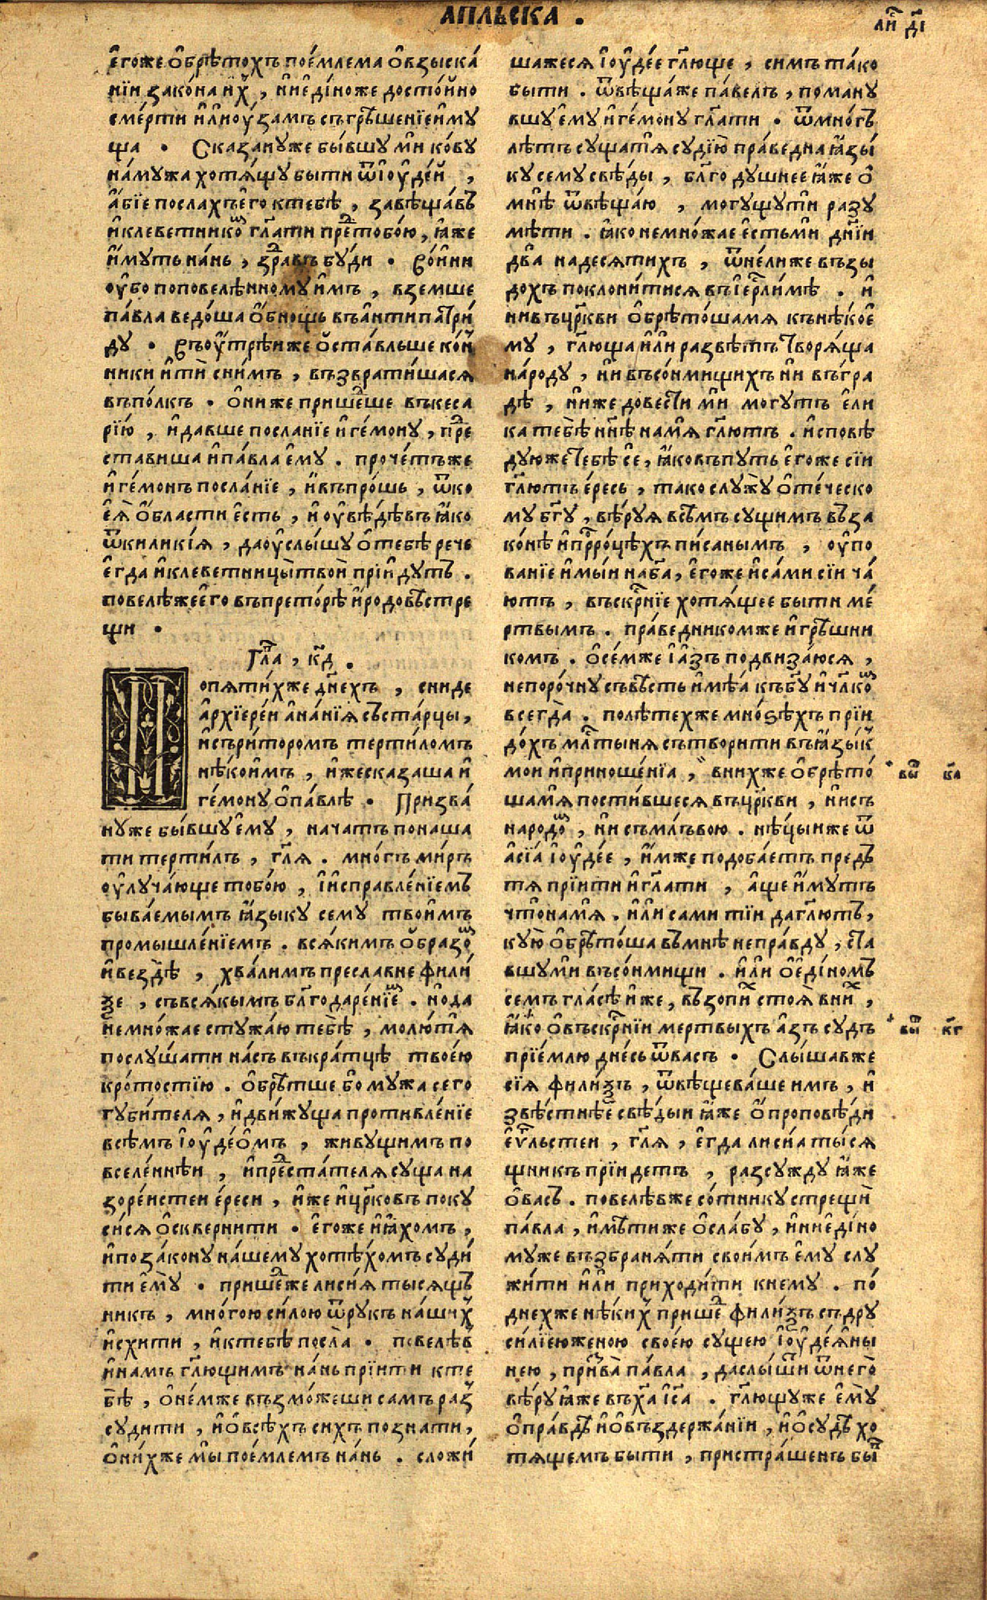 АПЛЬСКА .
ли҃ д҃і
є҆гоже ѡ҆брѣтохъ поє́млема ѡ҆взыска́
нїи зако́на и҆х҃ , ни є҆ди́ноже досто́йно
сме́рти и҆ли ноу҆замъ съгрѣшенїе и҆му
ща . Сказануже бы́вшу ми ко́ву
на́ мужа хотя́щу быти ѿ і҆оуде́й ,
а҆бїе послахъ є҆го ктебѣ , завѣща́въ
и҆ клеветнико҃м гл҃ати пре҃ тобо́ю , ꙗ҆же
и҆муть на́нь , здра҃въ бу́ди . Во́ини
оу҆бо поповелѣнному и҆мъ , вземше
па́вла ведо́ша ѡ҆бнощь въ а҆нтипатри́
ду . Въоу҆трѣиже ѡ҆ста́вльше ко́н
ники и҆ти́ сни́мъ , възврати́шася
въпо́лкъ . ѻ҆ниже прише҃ше въкеса
рі́ю , и҆ давше посланїе и҆ге́мону , пр҃е
ставиша и҆ па́вла є҆му . проче́тъже
и҆ге́монъ посла́нїе , и҆ въпро́шь , ѿ ко
є҆ѧ̀ ѡ҆бласти є҆сть , и҆ оу҆вѣ́дѣвъ ꙗ҆ко
ѿ киликі́я , да оу҆слы́шу ѡ҆тебѣ рече
є҆гда и҆ клеветницы̀ твоѝ прїи́дутъ .
повелѣже є҆го въпрето́рѣ и҆родовѣ стре
щи .
Гл҃а , к҃д .
П
опяти́хже дн҃ехъ , сниде
а҆рхїере́и а҆на́нїя съста́рцы ,
и҆ съри́торомъ терти́ломъ
нѣкои҆мъ , и҆же сказаша и҆
ге́мону ѡ҆ па́влѣ . Призва́
нуже бы́вшу є҆му , начатъ понаша
ти терти́лъ , гл҃я . мно́гъ ми́ръ
оу҆луча́юще тобо́ю , и҆ и҆справле́нїемъ
быва́емымъ ꙗ҆зыку сему твои҆мъ
промышле́нїемъ . вся́кимъ ѡ҆бразо҃м
и҆ вездѣ̀ , хва́лимъ преславне фили́
ѯе , съвся́кымъ бл҃годаре́нїе҃м . но да
не мно́жае стужа́ю тебѣ , молю́тѧ
послу́шати на́съ въкра́тцѣ твое́ю
кро́тостїю . ѡ҆брѣтше бо мужа сего
губи́теля , и҆ дви́жуща противле́нїе
всѣ́мъ і҆оу҆де́ѡмъ , живу́щимъ по
вселе́ннѣи , и҆ пре҃ста́теля су́ща на
зоре́истеи є́реси , и҆же и҆ цр҃ковь поку
си́ся ѡ҆сквернити . є҆гоже и҆ ꙗ҆хомъ ,
и҆ по зако́ну на́шему хотѣ́хомъ суди́
ти є҆му̀ . прише҃же лиси́я ты́сящъ
никъ , мно́гою си́лою ѿ рукъ на́ших҃
и҆схити , и҆ ктебѣ посла . повелѣв
и҆ намъ гл҃ющимъ на́нь прїити кте
бѣ , ѻ҆не́мже възмо́жеши самъ раз҃
судити , и҆ ѡ҆всѣ́хъ сихъ познати ,
ѻ҆ни́хже мы̀ пое́млемъ на́нь . сложи́
шажеся і҆оу҆де́е гл҃юще , симъ та́ко
быти . ѿвѣща́же па́велъ , поману
вшу є҆му и҆ге́мону гл҃ати . ѿ мно́гъ
лѣтъ су́ща тѧ судїю̀ пра́ведна ꙗ҆зы́
ку сему свѣ́ды , бл҃году́шнее ꙗ҆же ѡ҆
мнѣ̀ ѿвѣща́ю , могу́щу ти разу
мѣти . ꙗ҆ко не мно́жае є҆стьмѝ дн҃їи
два̀ надесятихъ , ѿне́лиже възы
дохъ поклони́тися въ і҆ер҃ли́мѣ . и҆
ни въцр҃кви ѡ҆брѣто́шамя къ нѣкое҆
му , гл҃юща и҆ли развѣтъ творя́ща
на́роду , ни въсо́нмищихъ ни въ гра
дѣ , ниже довести ми могутъ є҆ли
ка тебѣ̀ нн҃ѣ на мя̀ гл҃ютъ . и҆сповѣ
дуюже тебѣ сѐ , ꙗ҆ко въпуть є҆гоже сїи
гл҃ютъ є́ресь , тако служу̀ ѻ҆те́ческо
му бг҃у , вѣ́руя всѣ́мъ су́щимъ въ за
ко́нѣ и҆ пр҃ро́цѣхъ пи́санымъ , оу҆по
ванїе и҆мы́и на бг҃а , є҆гоже и҆ са́ми сїи ча́
ютъ , въскр҃нїе хотя́щее быти ме́
ртвымъ . пра́ведникомже и҆ грѣ́шни
комъ . ѡ҆се́мже и҆ а҆зъ подвиза́юся ,
непоро́чну съвѣсть и҆мѣ́а къ бг҃у и҆ чл҃ко҃м
всегда̀ . полѣтехже мно́ѕѣхъ прїи
до́хъ мл҃тыня сътвори́ти въ ꙗ҆зык҃
мои и҆ приноше́нїа , внихже ѡ҆брѣто́
шамя пости́вшеся въцр҃кви , ни съ
народо҃м , ни съмлъвою . нѣ́цыиже ѿ
а҆сі́а і҆оу҆де́е , и҆мже подоба́етъ предъ
тя прїити и҆ гл҃ати , а҆ще и҆мутъ
что̀ намя̀ . и҆ли сами тїи да гл҃ютъ ,
кую̀ ѡ҆брѣто́ша въмнѣ̀ непра́вду , ста
вшу ми въсо́нмищи . и҆ли ѡ҆ є҆ди́номъ
семъ гла́сѣ и҆же , възопи҃х стоя̀ вни҃х ,
ꙗ҆ко ѡ҆въскр҃нїи мертвыхъ а҆зъ судъ
прїе́млю дне́сь ѿ васъ . Слы́шавже
сїя фили́ѯъ , ѿвѣщева́ше имъ , и҆
звѣ́стнѣе свѣ́дыи ꙗ҆же ѡ҆ проповѣ́ди
є҆ѵ҃льстеи , гл҃я , є҆гда лиси́а ты́ся
щникъ прїи́детъ , разсужду ꙗ҆же
ѡ҆ васъ . повелѣвже со́тнику стрещѝ
па́вла , и҆мѣтиже ѡ҆сла́бу , и҆ ни є҆ди́но
муже възбраня́ти свои́мъ є҆му слу
жи́ти и҆ли приходи́ти кнему . по́
днехже нѣких҃ прише҃ фили́ѯъ съ дру
си́лїею женою своє́ю су́щею і҆оу҆деяны
нею , призва̀ па́вла , да слы́ши ѿ него̀
вѣ́ру ꙗ҆же въ х҃а і҆с҃а . гл҃ющуже є҆му̀
ѡ҆ пра́вдѣ и҆ ѡ҆въздержа́нїи , и҆ ѡ҆ судѣ хо
тя́щемъ быти , пристра́шенъ бы҃
вы҃ к҃а
вы҃ к҃г